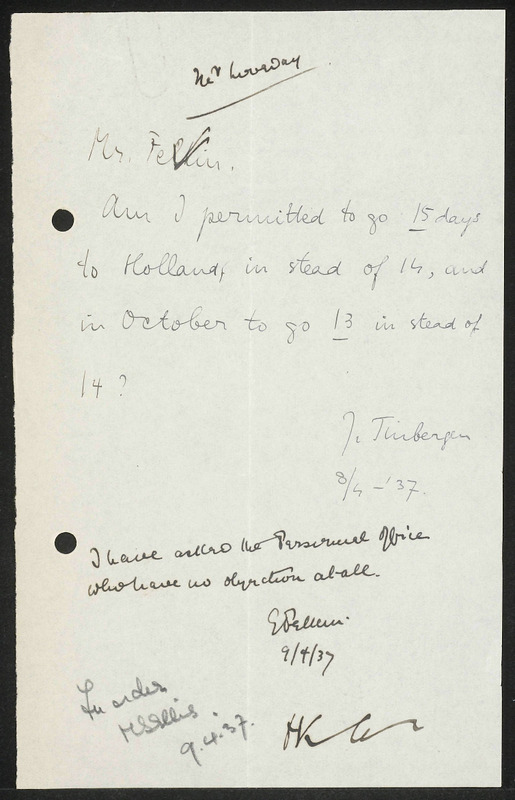 Mr Loveday
Mr. Felkin.
Am I permitted to go 15 days
to Holland, in stead of 14, and
in October to go 13 in stead of
14?
J. Tinbergen
8/4 - '37.
I have asked the Personnel Office
who have no objection at all.
EFelkin.
9/4/37
In order
9.4.37.